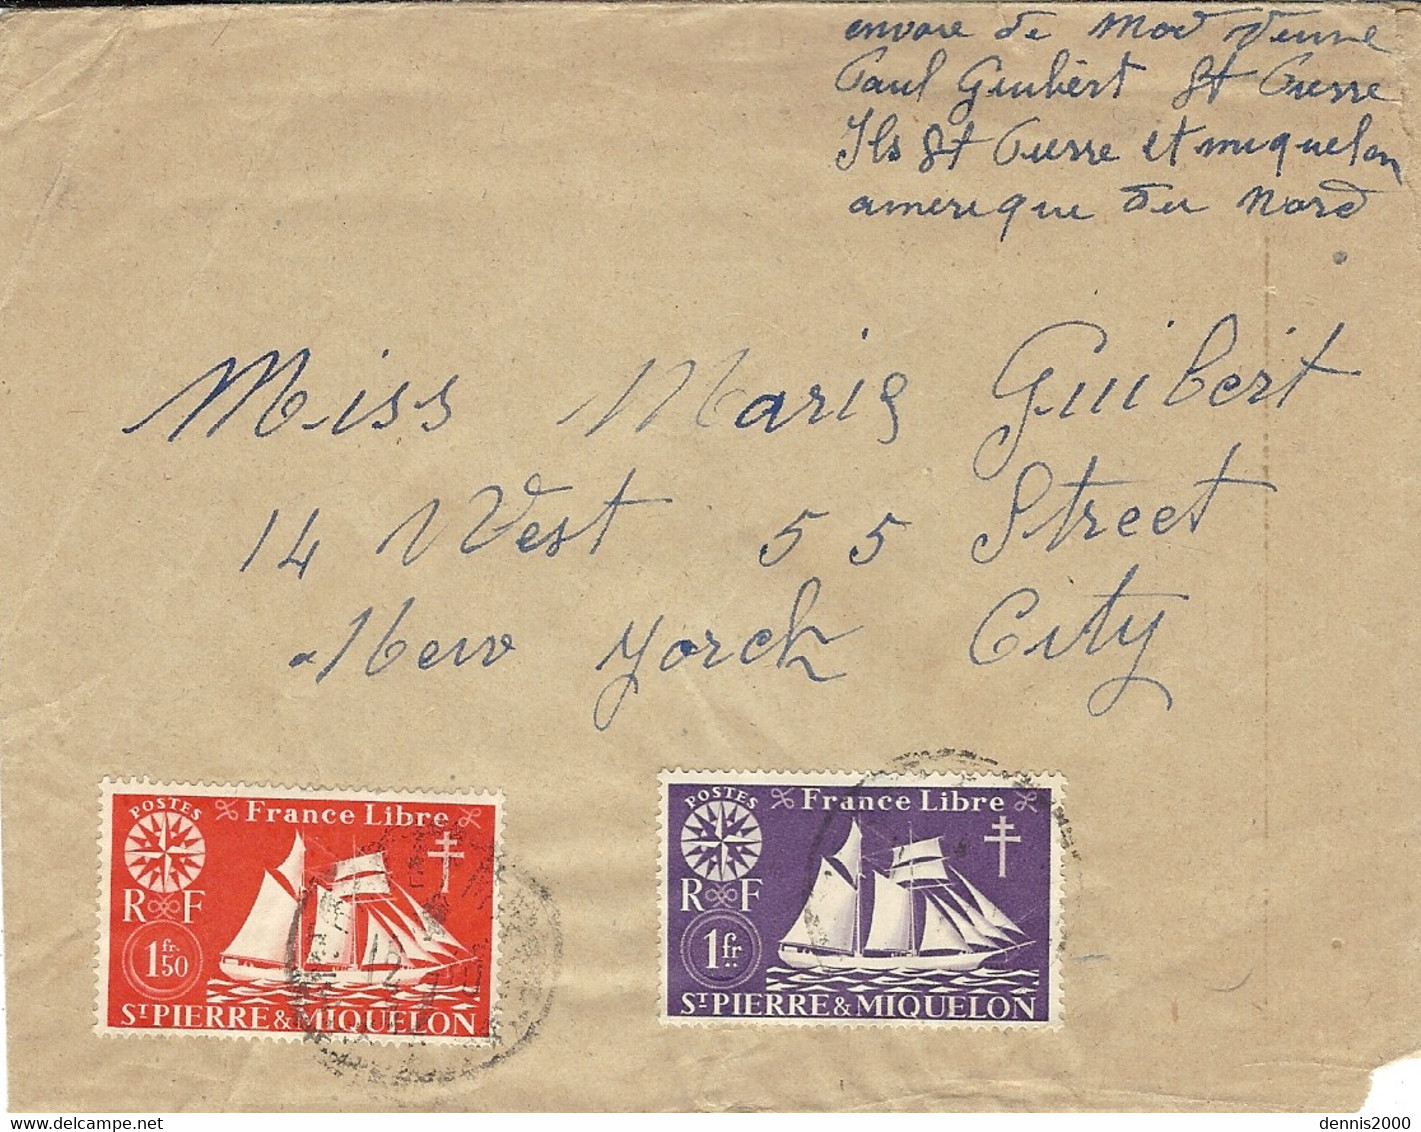 envore de Mad veuve
Paul Guibert St Pierre
Ils St Pierre et miquelon
amerique du Nord
Miss Marie Guibert
14 West 55 Street
New Yorck City
POSTES France Libre
RF
1fr.50
ST PIERRE & MIQUELON
POSTES France Libre
RF
1fr
ST PIERRE & MIQUELON
dennis2000